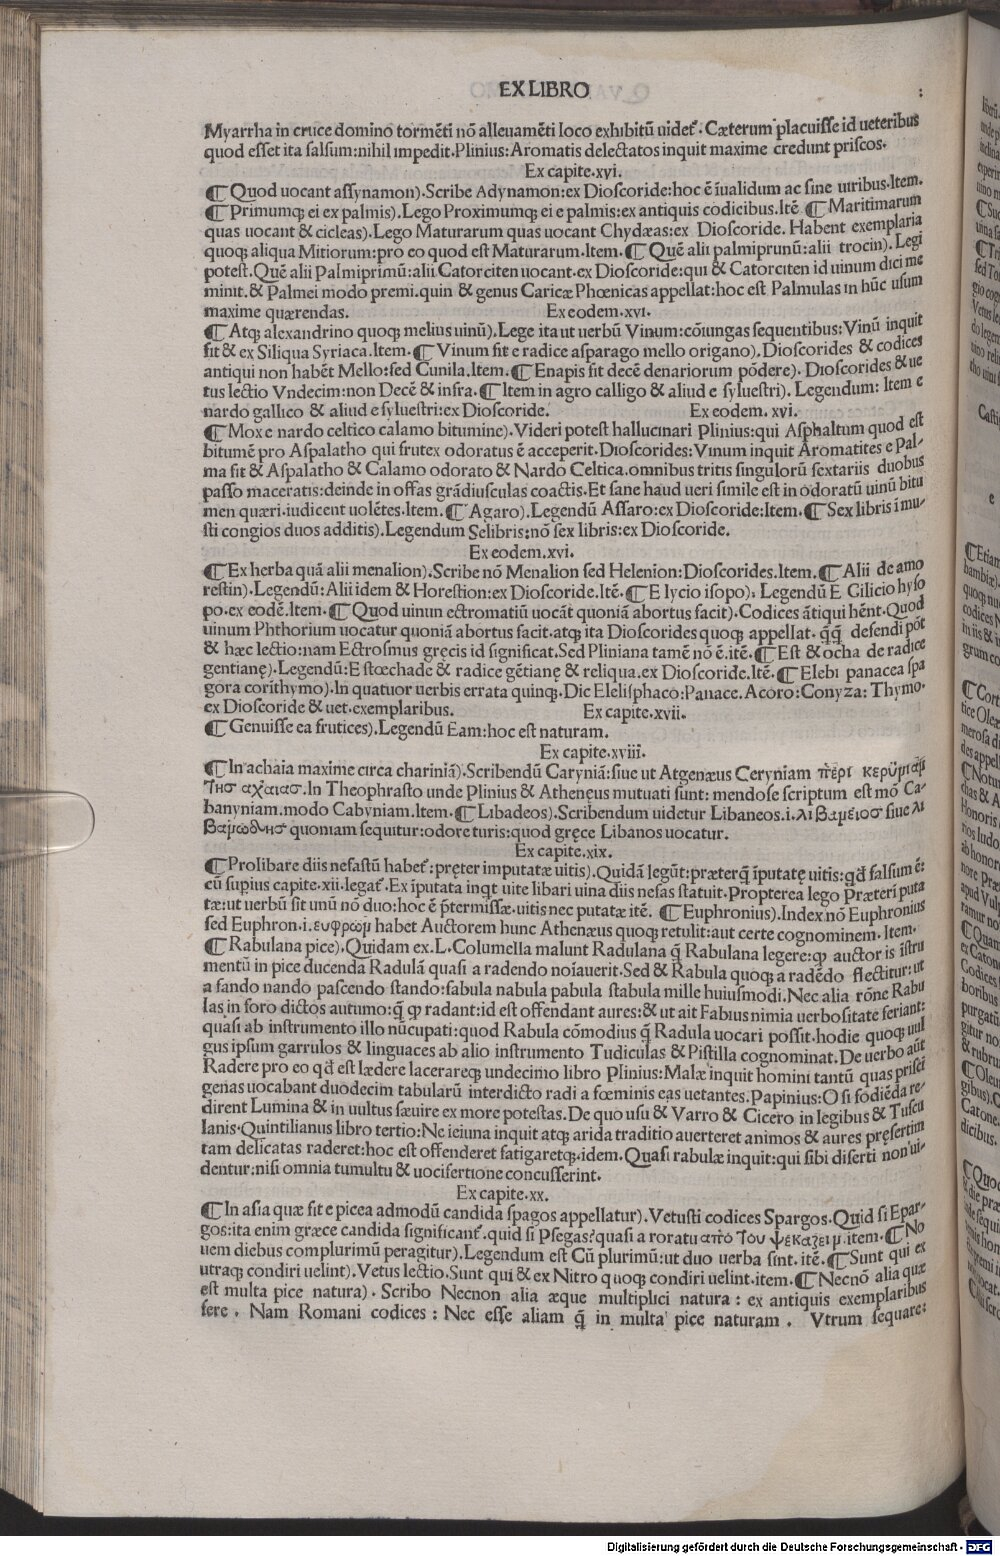 EX LIBRO
Myarrha in cruce domino tormēti nō alleuamēti loco exhibitū uidet᷑. Cæterum placuisse id ueteribus
quod esset ita salsum:nihil impedit.Plinius:Aromatis delectatos inquit maxime credunt priscos.
Ex capite.xvi.
¶ Quod uocant assynamon).Scribe Adynamon:ex Dioscoride:hoc ē īualidum ac sine uiribus.Item.
¶ Primumq; ei ex palmis).Lego Proximumq; ei e palmis:ex antiquis codicibus.Itē ¶ Maritimarum
quas uocant & cicleas).Lego Maturarum quas uocant Chydæas:ex Dioscoride. Habent exemplaria
quoq; aliqua Mitiorum:pro eo quod est Maturarum.Item.¶ Quē alii palmiprunū:alii trocin). Legi
potest.Quē alii Palmiprimū:alii Catorciten uocant.ex Dioscoride:qui & Catorciten id uinum dici me
minit.& Palmei modo premi.quin & genus Caricæ Phœnicas appellat:hoc est Palmulas in hūc usum
maxime quærendas. Ex eodem.xvi.
¶ Atq; alexandrino quoq; melius uinū).Lege ita ut uerbū Vinum:cōiungas sequentibus:Vinū inquit
fit & ex Siliqua Syriaca.Item.¶ Vinum fit e radice asparago mello origano).Dioscorides & codices
antiqui non habēt Mello:sed Cunila.Item.¶ Enapis fit decē denariorum pōdere). Dioscorides & ue
tus lectio Vndecim:non Decē & infra.¶ Item in agro calligo & aliud e syluestri). Legendum: Item e
nardo gallico & aliud e syluestri:ex Dioscoride. Ex eodem. xvi.
¶ Mox e nardo celtico calamo bitumine).Videri potest hallucinari Plinius:qui Asphaltum quod est
bitumē pro Aspalatho qui frutex odoratus ē acceperit.Dioscorides:Vinum inquit Aromatites e Pal-
ma fit & Aspalatho & Calamo odorato & Nardo Celtica.omnibus tritis singulorū sextariis duobus
passo maceratis:deinde in offas grādiusculas coactis.Et sane haud ueri simile est in odoratū uinū bitu
men quæri.iudicent uolētes.Item.¶ Agaro).Legendū Assaro:ex Dioscoride:Item.¶ Sex libris ī mu-
sti congios duos additis).Legendum Selibris:nō sex libris:ex Dioscoride.
Ex eodem.xvi.
¶ Ex herba quā alii menalion).Scribe nō Menalion sed Helenion:Dioscorides.Item.¶ Alii de amo
restin).Legendū:Alii idem & Horestion:ex Dioscoride.Itē.¶ E lycio isopo). Legendū E Cilicio hyso
po.ex eodē.Item.¶ Quod uinun ectromatiū uocāt quoniā abortus facit).Codices ātiqui hēnt.Quod
uinum Phthorium uocatur quoniā abortus facit.atq; ita Dioscorides quoq; appellat. q̄q̄ defendi pōt
& hæc lectio:nam Ectrosmus gręcis id significat.Sed Pliniana tamē nō ē.itē.¶ Est & ocha de radice
gentianę).Legendū:E stœchade & radice gētianę & reliqua.ex Dioscoride.Itē.¶ Elebi panacea spa
gora corithymo).In quatuor uerbis errata quinq;.Die Elelisphaco:Panace.Acoro:Conyza:Thymo.
ex Dioscoride & uet.exemplaribus. Ex capite.xvii.
¶ Genuisse ea frutices).Legendū Eam:hoc est naturam.
Ex capite.xviii.
¶ In achaia maxime circa chariniā).Scribendū Caryniā:siue ut Atgenæus Ceryniam πὲρι κερῦμιαμ
τησ αχαιασ.In Theophrasto unde Plinius & Athenęus mutuati sunt: mendose scriptum est mō Ca-
banyniam.modo Cabyniam.Item.¶ Libadeos).Scribendum uidetur Libaneos.i.λιβαμέιοσ siue λι
βαμωδησ quoniam sequitur:odore turis:quod gręce Libanos uocatur.
Ex capite.xix.
¶ Prolibare diis nefastū habet᷑:pręter imputatæ uitis).Quidā legūt:præterq̄ īputatę uitis:qd̄ falsum ē:
cū supius capite.xii.legat᷑.Ex īputata inqt uite libari uina diis nefas statuit.Propterea lego Præteri puta
tæ:ut uerbū sit unū nō duo:hoc ē p̄termissæ.uitis nec putatæ itē. ¶ Euphronius).Index nō Euphronius
sed Euphron.i.ευφρωμ habet Auctorem hunc Athenæus quoq; retulit:aut certe cognominem.Item.
¶ Rabulana pice).Quidam ex.L.Columella malunt Radulana q̄ Rabulana legere:qꝫ auctor is īstru
mentū in pice ducenda Radulā quasi a radendo noīauerit.Sed & Rabula quoq; a radēdo flectitur:ut
a fando nando pascendo stando:fabula nabula pabula stabula mille huiusmodi.Nec alia rōne Rabu
las in foro dictos autumo:q̄ qꝫ radant:id est offendant aures:& ut ait Fabius nimia uerbositate feriant:
quasi ab instrumento illo nūcupati:quod Rabula cōmodius q̄ Radula uocari possit.hodie quoq; uul
gus ipsum garrulos & linguaces ab alio instrumento Tudiculas & Pistilla cognominat.De uerbo aūt
Radere pro eo qd̄ est lædere lacerareq; undecimo libro Plinius:Malæ inquit homini tantū quas prisci
genas uocabant duodecim tabularū interdicto radi a fœminis eas uetantes.Papinius:O si fodiēda re-
dirent Lumina & in uultus sæuire ex more potestas.De quo usu & Varro & Cicero in legibus & Tuscu
lanis.Quintilianus libro tertio:Ne ieiuna inquit atq; arida traditio auerteret animos & aures pręsertim
tam delicatas raderet:hoc est offenderet fatigaretq;.idem.Quasi rabulæ inquit:qui sibi diserti non ui-
dentur:nisi omnia tumultu & uocifertione concusserint.
Ex capite.xx.
¶ In asia quæ fit e picea admodū candida spagos appellatur).Vetusti codices Spargos.Quid si Epar-
gos:ita enim græce candida significant᷑.quid si Psegas?quasi a roratu απὸ του ψεκαζειμ.item.¶ No
uem diebus complurimū peragitur).Legendum est Cū plurimū:ut duo uerba sint. itē.¶ Sunt qui ex
utraq; condiri uelint).Vetus lectio.Sunt qui & ex Nitro quoq; condiri uelint.item.¶ Necnō alia quæ
est multa pice natura). Scribo Necnon alia æque multiplici natura: ex antiquis exemplaribus
fere. Nam Romani codices: Nec esse aliam q̄ in multa pice naturam. Vtrum sequare:
Digitalisierung gefördert durch die Deutsche Forschungsgemeinschaft - DFG